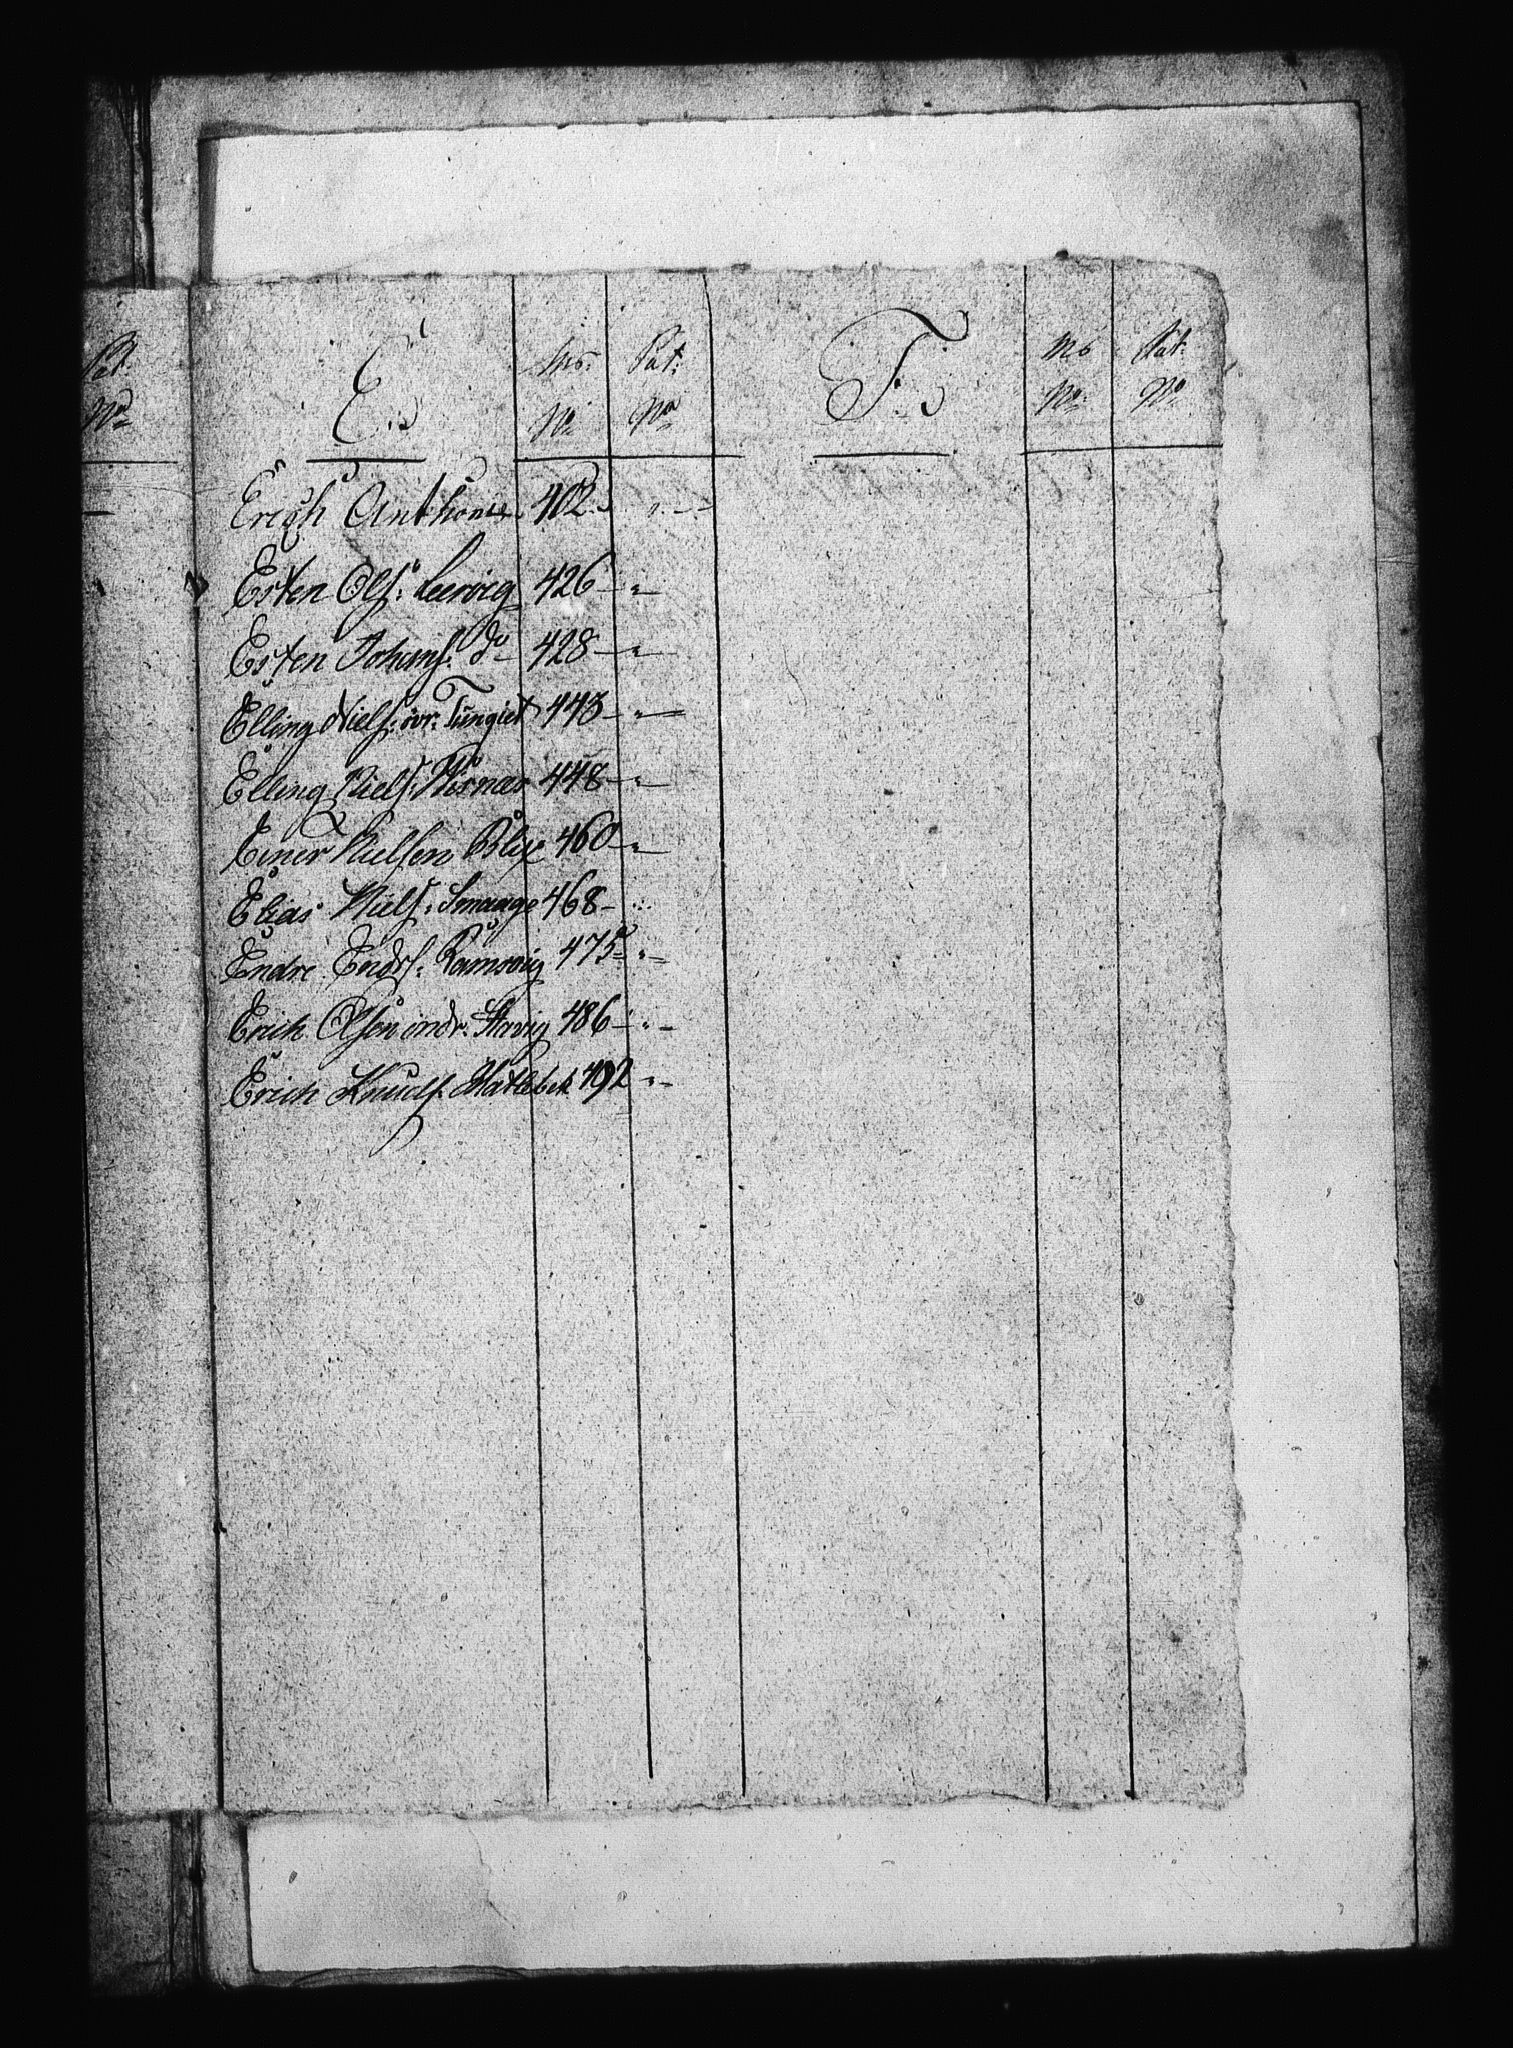 Pat:
No
E.
Mo: No
Pat: No
F.
Mo No
Pat: No
Erich Anthonis 402. " --
Esten Ols: Leervig 426 - " -
Esten Johans: do 428 - " -
Elling Niels: ovr: Tungiet 443 - " -
Elling Niels: 448 - " -
Einer Nielsen Blix 460 - " -
Elias Niels: Smaage 468 -
Endre Endrs: Ramsvig 475 - " -
Erich Olsen indr. Stavig 486 - " -
Erich Knuds. Hatlebek 492 " -